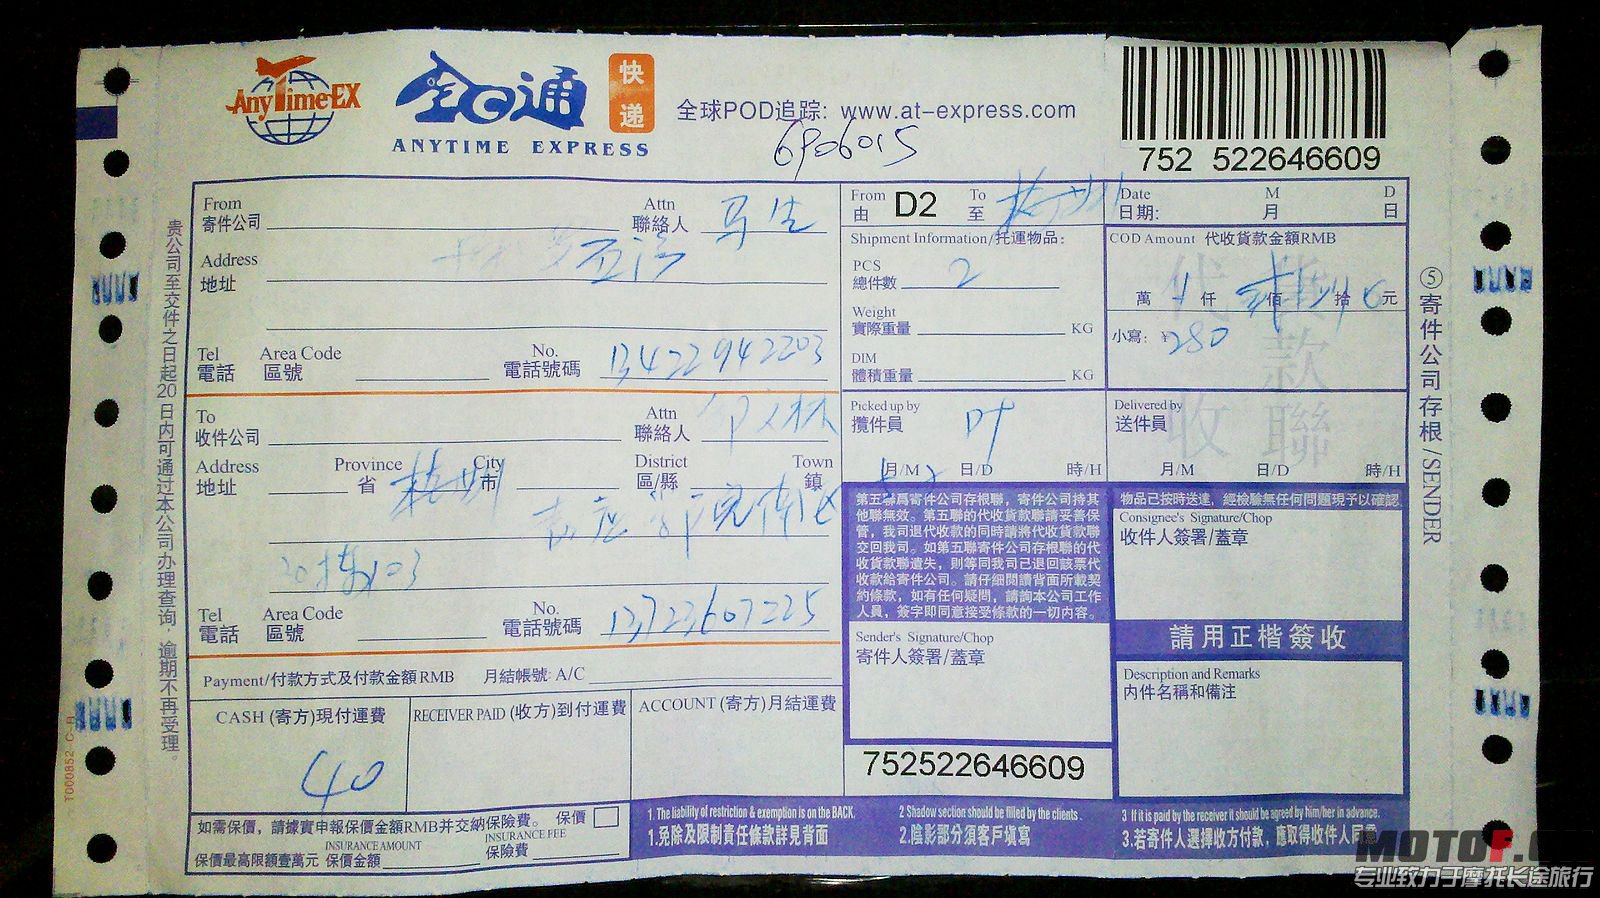 AnyTime-EX
全C通
快递
ANYTIME EXPRESS
全球POD追踪: www.at-express.com
6906015
752 522646609
From
寄件公司
Attn
聯絡人 马生
Address
地址
Tel
電話
Area Code
區號
No.
電話號碼 13422942203
To
收件公司
Attn
聯絡人
Address
地址
Province
省
City
市
梅州
District
區/縣
Town
鎮
20栋103
Tel
電話
Area Code
區號
No.
電話號碼 13723607225
Payment/付款方式及付款金額RMB 月結帳號: A/C
CASH (寄方)現付運費
40
RECEIVER PAID (收方)到付運費
ACCOUNT (寄方)月結運費
如需保價，請據實申報保價金額RMB并交納保險費。 保價
INSURANCE AMOUNT
INSURANCE FEE
保價最高限額壹萬元 保價金額
保險費
From
由 D2
To
至 梅州
Date
日期:
M
月
D
日
Shipment Information/托運物品:
PCS
總件數 2
Weight
實際重量 KG
DIM
體積重量 KG
COD Amount 代收貨款金額RMB
萬 仟 佰 拾 元
小寫: ¥280
代收貨款聯
Picked up by
攬件員 叶
月/M 日/D 時/H
Delivered by
送件員
月/M 日/D 時/H
第五聯爲寄件公司存根聯，寄件公司持其
他聯無效。第五聯的代收貨款聯請妥善保
管，我司退代收款的同時請將代收貨款聯
交回我司。如第五聯寄件公司存根聯的代
收貨款聯遺失，則等同我司已退回該票代
收款給寄件公司。請仔細閱讀背面所載契
約條款，如有任何疑問，請詢本公司工作
人員，簽字即同意接受條款的一切内容。
Sender's Signature/Chop
寄件人簽署/蓋章
752522646609
物品已按時送達，經檢驗無任何問題現予以確認
Consignee's Signature/Chop
收件人簽署/蓋章
請用正楷簽收
Description and Remarks
内件名稱和備注
1. The liability of restriction & exemption is on the BACK.
1.免除及限制責任條款詳見背面
2 Shadow section should be filled by the clients.
2.陰影部分須客戶填寫
3 If it is paid by the receiver it should be agreed by him/her in advance.
3.若寄件人選擇收方付款，應取得收件人同意
貴公司至交件之日起20日内可通过本公司办理查询，逾期不再受理。
T000852-C-B
⑤寄件公司存根/SENDER
MOTOF.C
专业致力于摩托长途旅行